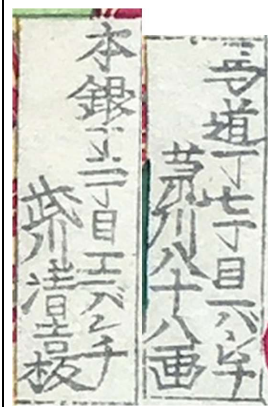 馬道丁七丁目一バンチ
荒川八十八画
本銀丁二丁目二バンチ
武川清吉板